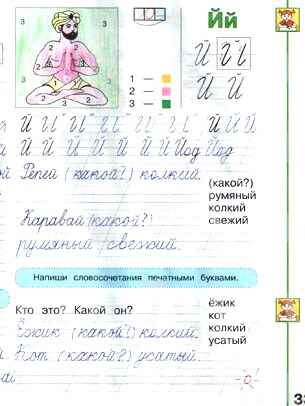 3 3
2 2
2 2
3 3
1 —
2 —
3 —
Йй
Й Й
Й Й
Й Й Й Й Й Й Й Й Й Й
Й Й Й Й Й Й Й Йод Йод
Репей (какой?) колкий.
(какой?)
румяный
колкий
свежий
Каравай (какой?)
румяный свежий.
Напиши словосочетания печатными буквами.
Кто это? Какой он?
ёжик
кот
колкий
усатый
Ёжик (какой?) колкий.
Кот (какой?) усатый.